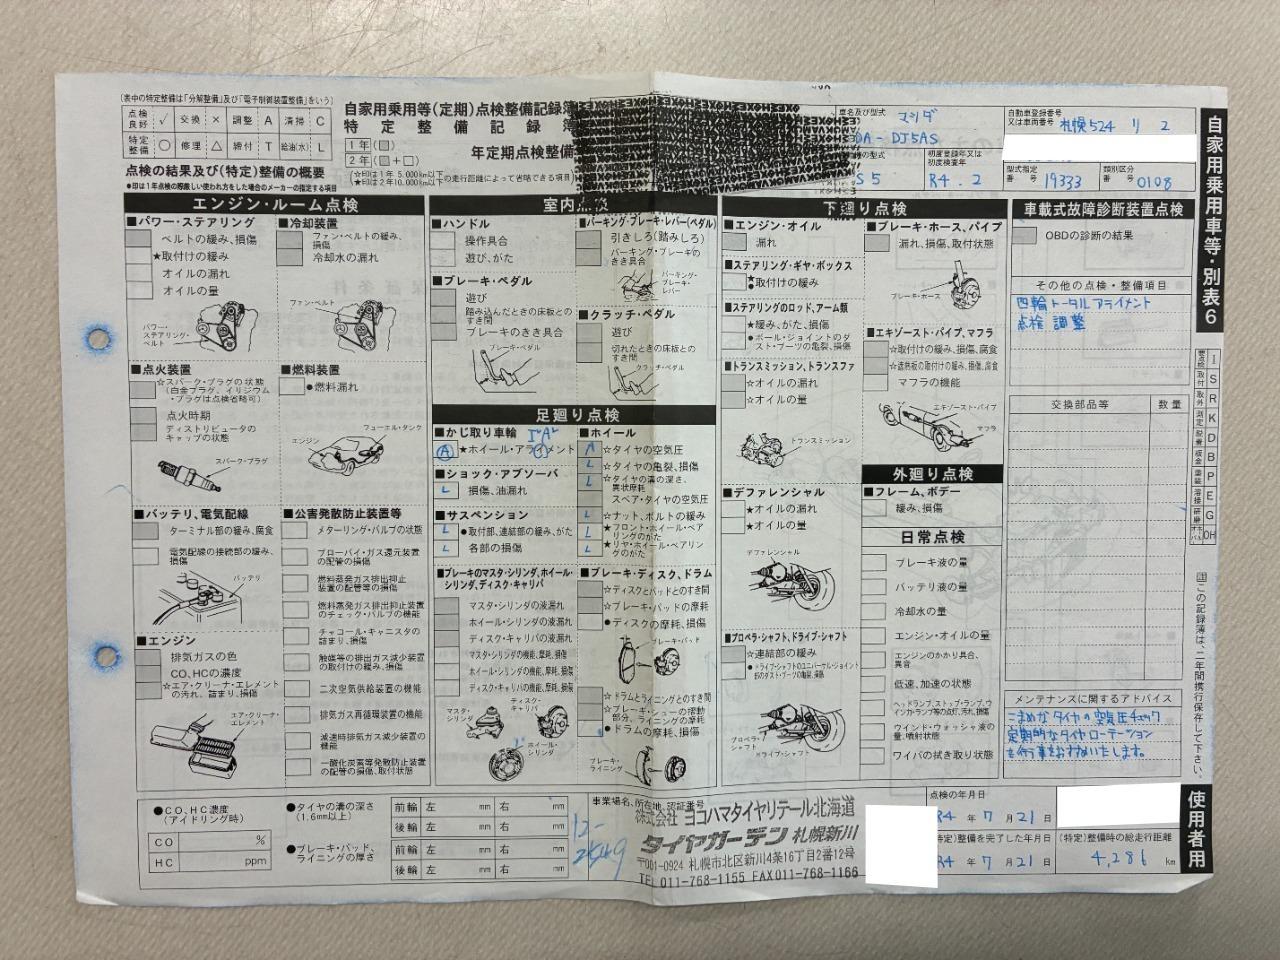 (表中の特定整備は「分解整備」及び「電子制御装置整備」をいう)
点検良好 ✓ 交換 × 調整 A 清掃 C
特定整備 ○ 修理 △ 締付 T 給油(水) L
点検の結果及び(特定)整備の概要
●印は1年点検の際厳しい使われ方をした場合のメーカーの指定する項目
自家用乗用等(定期)点検整備記録簿
特定整備記録簿
1年(□)
2年(□+□)
年定期点検整備
(☆印は1年 5,000km以下の走行距離によって省略できる項目)
(★印は2年10,000km以下
車名及び型式
マツダ
DA-DJ5AS
の型式
S5
初度登録年又は初度検査年
R4.2
自動車登録番号又は車両番号
札幌524 り 2
型式指定番号 19333
類別区分番号 0108
自家用乗用車等・別表6
エンジン・ルーム点検
■パワー・ステアリング
ベルトの緩み、損傷
★取付けの緩み
オイルの漏れ
オイルの量
パワー・ステアリング・ベルト
■冷却装置
ファン・ベルトの緩み、損傷
冷却水の漏れ
ファン・ベルト
■点火装置
☆スパーク・プラグの状態
(白金プラグ、イリジウム・プラグは点検省略可)
点火時期
ディストリビュータのキャップの状態
スパーク・プラグ
■燃料装置
●燃料漏れ
フューエル・タンク
エンジン
■バッテリ、電気配線
ターミナル部の緩み、腐食
電気配線の接続部の緩み、損傷
バッテリ
■公害発散防止装置等
メターリング・バルブの状態
ブローバイ・ガス還元装置の配管の損傷
燃料蒸発ガス排出抑止装置の配管等の損傷
燃料蒸発ガス排出抑止装置のチェック・バルブの機能
チャコール・キャニスタの詰まり、損傷
触媒等の排出ガス減少装置の取付けの緩み、損傷
二次空気供給装置の機能
排気ガス再循環装置の機能
減速時排気ガス減少装置の機能
一酸化炭素等発散防止装置の配管の損傷、取付状態
■エンジン
排気ガスの色
CO、HCの濃度
☆エア・クリーナ・エレメントの汚れ、詰まり、損傷
エア・クリーナ・エレメント
室内点検
■ハンドル
操作具合
遊び、がた
■ブレーキ・ペダル
遊び
踏み込んだときの床板とのすき間
ブレーキのきき具合
ブレーキ・ペダル
■パーキング・ブレーキ・レバー(ペダル)
引きしろ(踏みしろ)
パーキング・ブレーキのきき具合
パーキング・ブレーキ・レバー
■クラッチ・ペダル
遊び
切れたときの床板とのすき間
クラッチ・ペダル
足廻り点検
■かじ取り車輪
Ⓐ ★ホイール・アライメント
■ショック・アブソーバ
L 損傷、油漏れ
■サスペンション
L ●取付部、連結部の緩み、がた
L 各部の損傷
■ブレーキのマスタ・シリンダ、ホイール・シリンダ、ディスク・キャリパ
マスタ・シリンダの液漏れ
ホイール・シリンダの液漏れ
ディスク・キャリパの液漏れ
マスタ・シリンダの機能、摩耗、損傷
ホイール・シリンダの機能、摩耗、損傷
ディスク・キャリパの機能、摩耗、損傷
マスタ・シリンダ
ディスク・キャリパ
ホイール・シリンダ
■ホイール
A ☆タイヤの空気圧
L ☆タイヤの亀裂、損傷
L ☆タイヤの溝の深さ、異状摩耗
スペア・タイヤの空気圧
L ☆ナット、ボルトの緩み
L ★フロント・ホイール・ベアリングのがた
L ★リヤ・ホイール・ベアリングのがた
■ブレーキ・ディスク、ドラム
☆ディスクとパッドとのすき間
☆ブレーキ・パッドの摩耗
●ディスクの摩耗、損傷
ブレーキ・パッド
☆ドラムとライニングとのすき間
☆ブレーキ・シューの摺動部分、ライニングの摩耗
●ドラムの摩耗、損傷
ブレーキ・ライニング
下廻り点検
■エンジン・オイル
漏れ
■ステアリング・ギヤ・ボックス
★取付けの緩み
■ステアリングのロッド、アーム類
★緩み、がた、損傷
●ボール・ジョイントのダスト・ブーツの亀裂、損傷
■トランスミッション、トランスファ
☆オイルの漏れ
☆オイルの量
トランスミッション
■デファレンシャル
★オイルの漏れ
★オイルの量
デファレンシャル
■プロペラ・シャフト、ドライブ・シャフト
☆連結部の緩み
●ドライブ・シャフトのユニバーサル・ジョイント部のダスト・ブーツの亀裂、損傷
プロペラ・シャフト
ドライブ・シャフト
■ブレーキ・ホース、パイプ
漏れ、損傷、取付状態
ブレーキ・ホース
■エキゾースト・パイプ、マフラ
☆取付けの緩み、損傷、腐食
☆遮熱板の取付けの緩み、損傷、腐食
マフラの機能
エキゾースト・パイプ
マフラ
外廻り点検
■フレーム、ボデー
緩み、損傷
日常点検
ブレーキ液の量
バッテリ液の量
冷却水の量
エンジン・オイルの量
エンジンのかかり具合、異音
低速、加速の状態
ヘッドランプ、ストップ・ランプ、ウインカ・ランプ等の点灯、汚れ、損傷
ウインド・ウォッシャ液の量、噴射状態
ワイパの拭き取り状態
車載式故障診断装置点検
OBDの診断の結果
その他の点検・整備項目
四輪トータルアライメント
点検 調整
交換部品等 数量
メンテナンスに関するアドバイス
こまめなタイヤの空気圧チェック
定期的なタイヤローテーション
を行う事をおすすめいたします。
取付 I
取外 S
R
測定 K
脱着 D
板金 B
塗装 P
溶接 E
研磨 G
OH
注 この記録簿は、二年間携行保存して下さい。
使用者用
●CO、HC濃度(アイドリング時)
CO %
HC ppm
●タイヤの溝の深さ(1.6mm以上)
●ブレーキ・パッド、ライニングの厚さ
前輪 左 mm 右 mm
後輪 左 mm 右 mm
前輪 左 mm 右 mm
後輪 左 mm 右 mm
事業場名、所在地、認証番号
株式会社 ヨコハマタイヤリテール北海道
タイヤガーデン 札幌新川
〒001-0924 札幌市北区新川4条16丁目2番12号
TEL 011-768-1155 FAX011-768-1166
点検の年月日
R4 年 7 月 21 日
(特定)整備を完了した年月日
R4 年 7 月 21 日
(特定)整備時の総走行距離
4,286 km